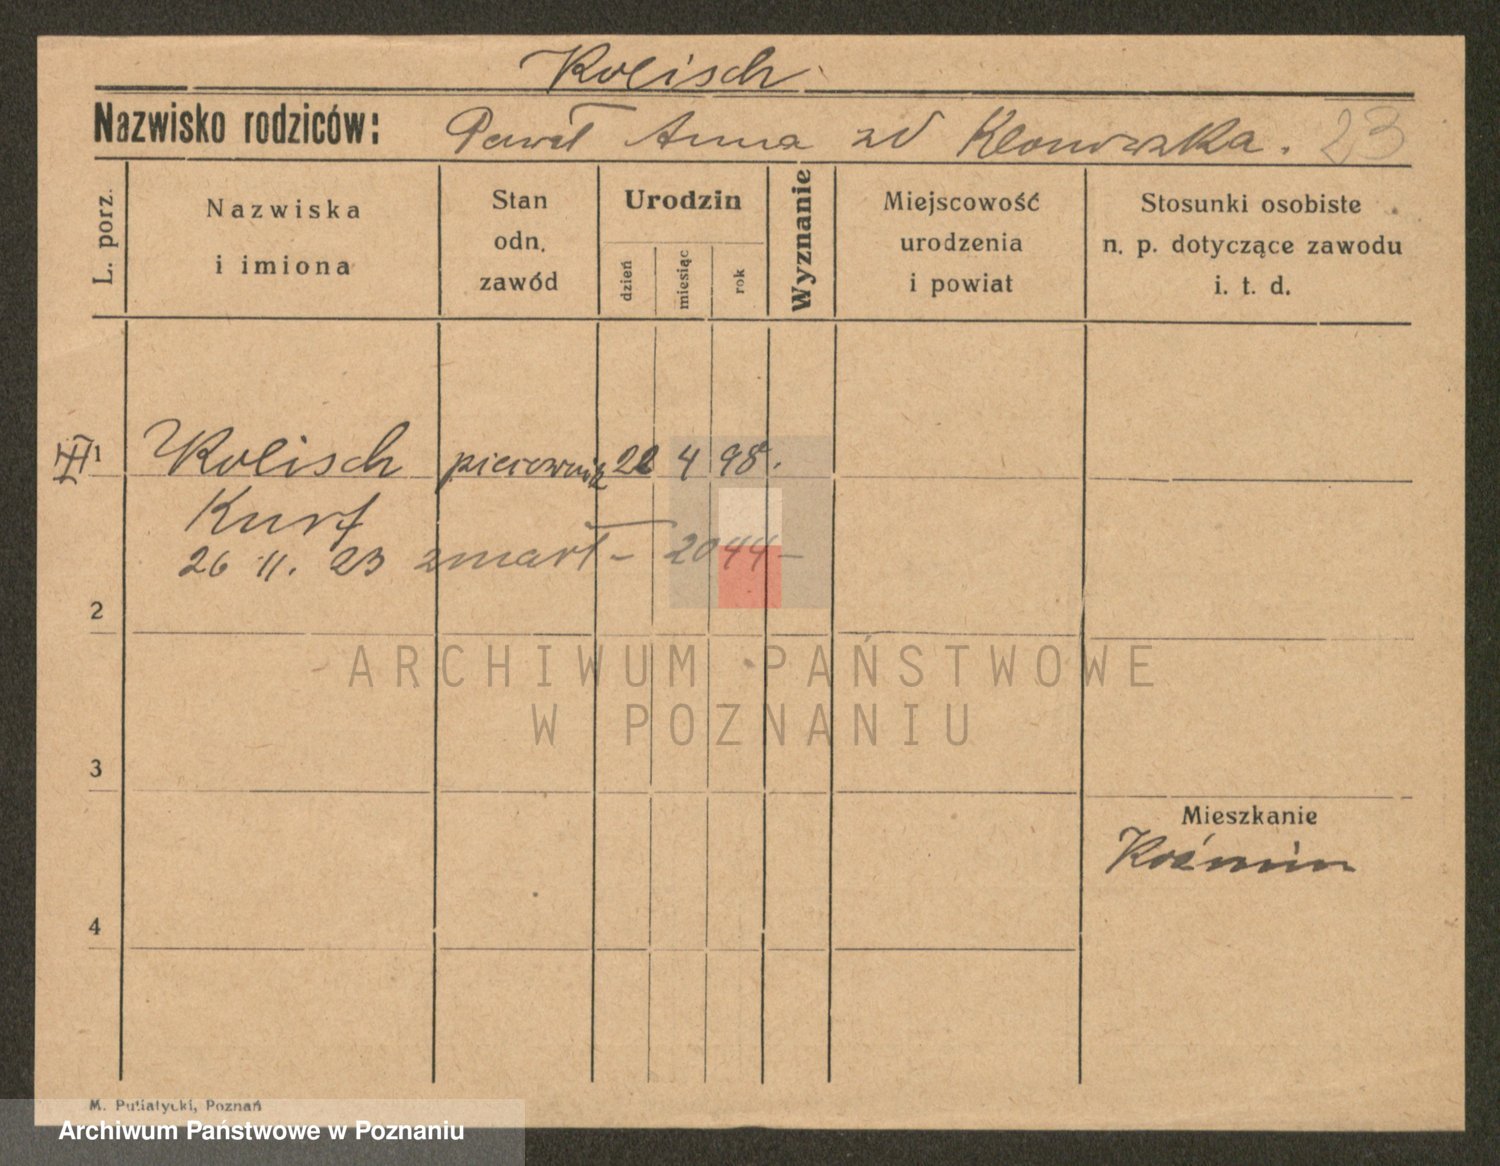 Kolisch
Nazwisko rodziców: Paweł Anna zd Klonowska. 23
L. porz.
Nazwiska
i imiona
Stan
odn.
zawód
Urodzin
dzień
miesiąc
rok
Wyznanie
Miejscowość
urodzenia
i powiat
Stosunki osobiste
n. p. dotyczące zawodu
i. t. d.
1 Kolisch piecownik 22 4 98.
Kurt
26 11. 23 zmarł – 2044 –
2
ARCHIWUM PAŃSTWOWE
W POZNANIU
3
Mieszkanie
Koźmin
4
M. Putiatycki, Poznań
Archiwum Państwowe w Poznaniu